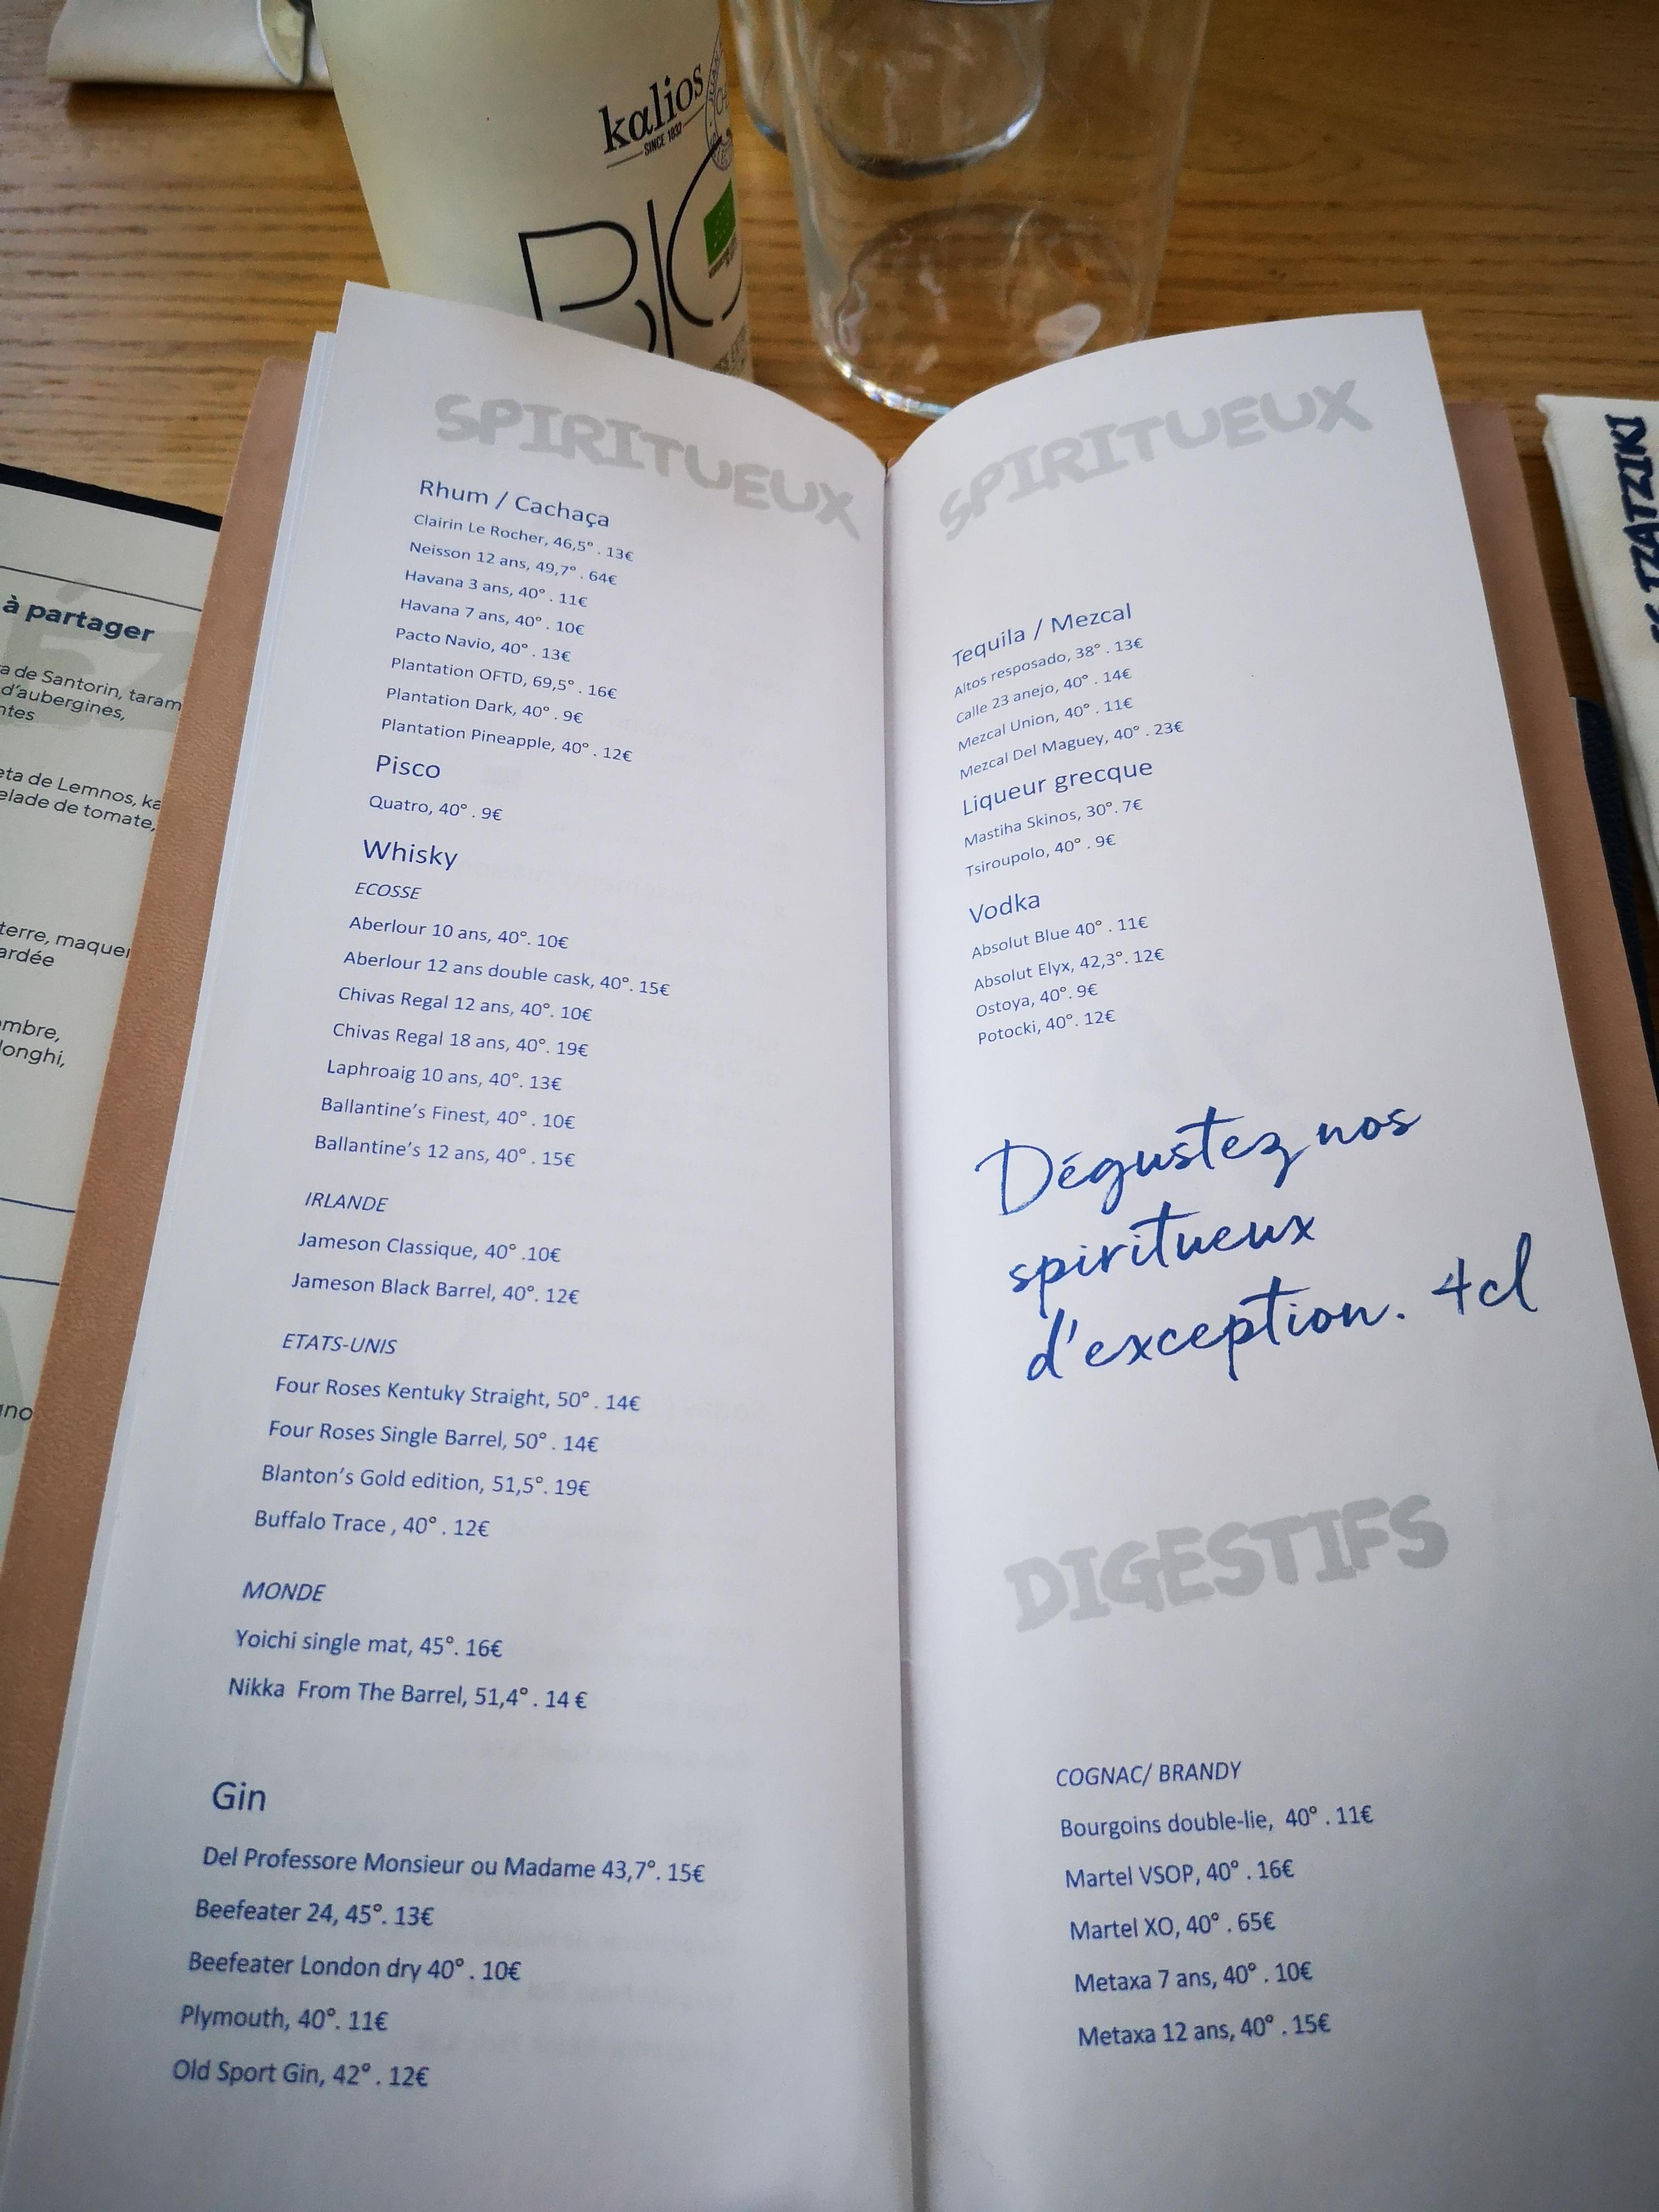 kalios
SINCE 1837
BIO
à partager
a de Santorin, taram
d'aubergines,
ntes
eta de Lemnos, ka
elade de tomate,
terre, maquer
ardée
ombre,
longhi,
SPIRITUEUX
Rhum / Cachaça
Clairin Le Rocher, 46,5° . 13€
Neisson 12 ans, 49,7° . 64€
Havana 3 ans, 40° . 11€
Havana 7 ans, 40° . 10€
Pacto Navio, 40° . 13€
Plantation OFTD, 69,5° . 16€
Plantation Dark, 40° . 9€
Plantation Pineapple, 40° . 12€
Pisco
Quatro, 40° . 9€
Whisky
ECOSSE
Aberlour 10 ans, 40°. 10€
Aberlour 12 ans double cask, 40°. 15€
Chivas Regal 12 ans, 40°. 10€
Chivas Regal 18 ans, 40°. 19€
Laphroaig 10 ans, 40°. 13€
Ballantine's Finest, 40° . 10€
Ballantine's 12 ans, 40° . 15€
IRLANDE
Jameson Classique, 40° .10€
Jameson Black Barrel, 40°. 12€
ETATS-UNIS
Four Roses Kentuky Straight, 50° . 14€
Four Roses Single Barrel, 50° . 14€
Blanton's Gold edition, 51,5°. 19€
Buffalo Trace , 40° . 12€
MONDE
Yoichi single mat, 45°. 16€
Nikka From The Barrel, 51,4° . 14 €
Gin
Del Professore Monsieur ou Madame 43,7°. 15€
Beefeater 24, 45°. 13€
Beefeater London dry 40° . 10€
Plymouth, 40°. 11€
Old Sport Gin, 42° . 12€
SPIRITUEUX
Tequila / Mezcal
Altos resposado, 38° . 13€
Calle 23 anejo, 40° . 14€
Mezcal Union, 40° . 11€
Mezcal Del Maguey, 40° . 23€
Liqueur grecque
Mastiha Skinos, 30°. 7€
Tsiroupolo, 40° . 9€
Vodka
Absolut Blue 40° . 11€
Absolut Elyx, 42,3°. 12€
Ostoya, 40°. 9€
Potocki, 40°. 12€
Dégustez nos
spiritueux
d'exception. 4cl
DIGESTIFS
COGNAC/ BRANDY
Bourgoins double-lie, 40° . 11€
Martel VSOP, 40° . 16€
Martel XO, 40° . 65€
Metaxa 7 ans, 40° . 10€
Metaxa 12 ans, 40° . 15€
TZATZIKI